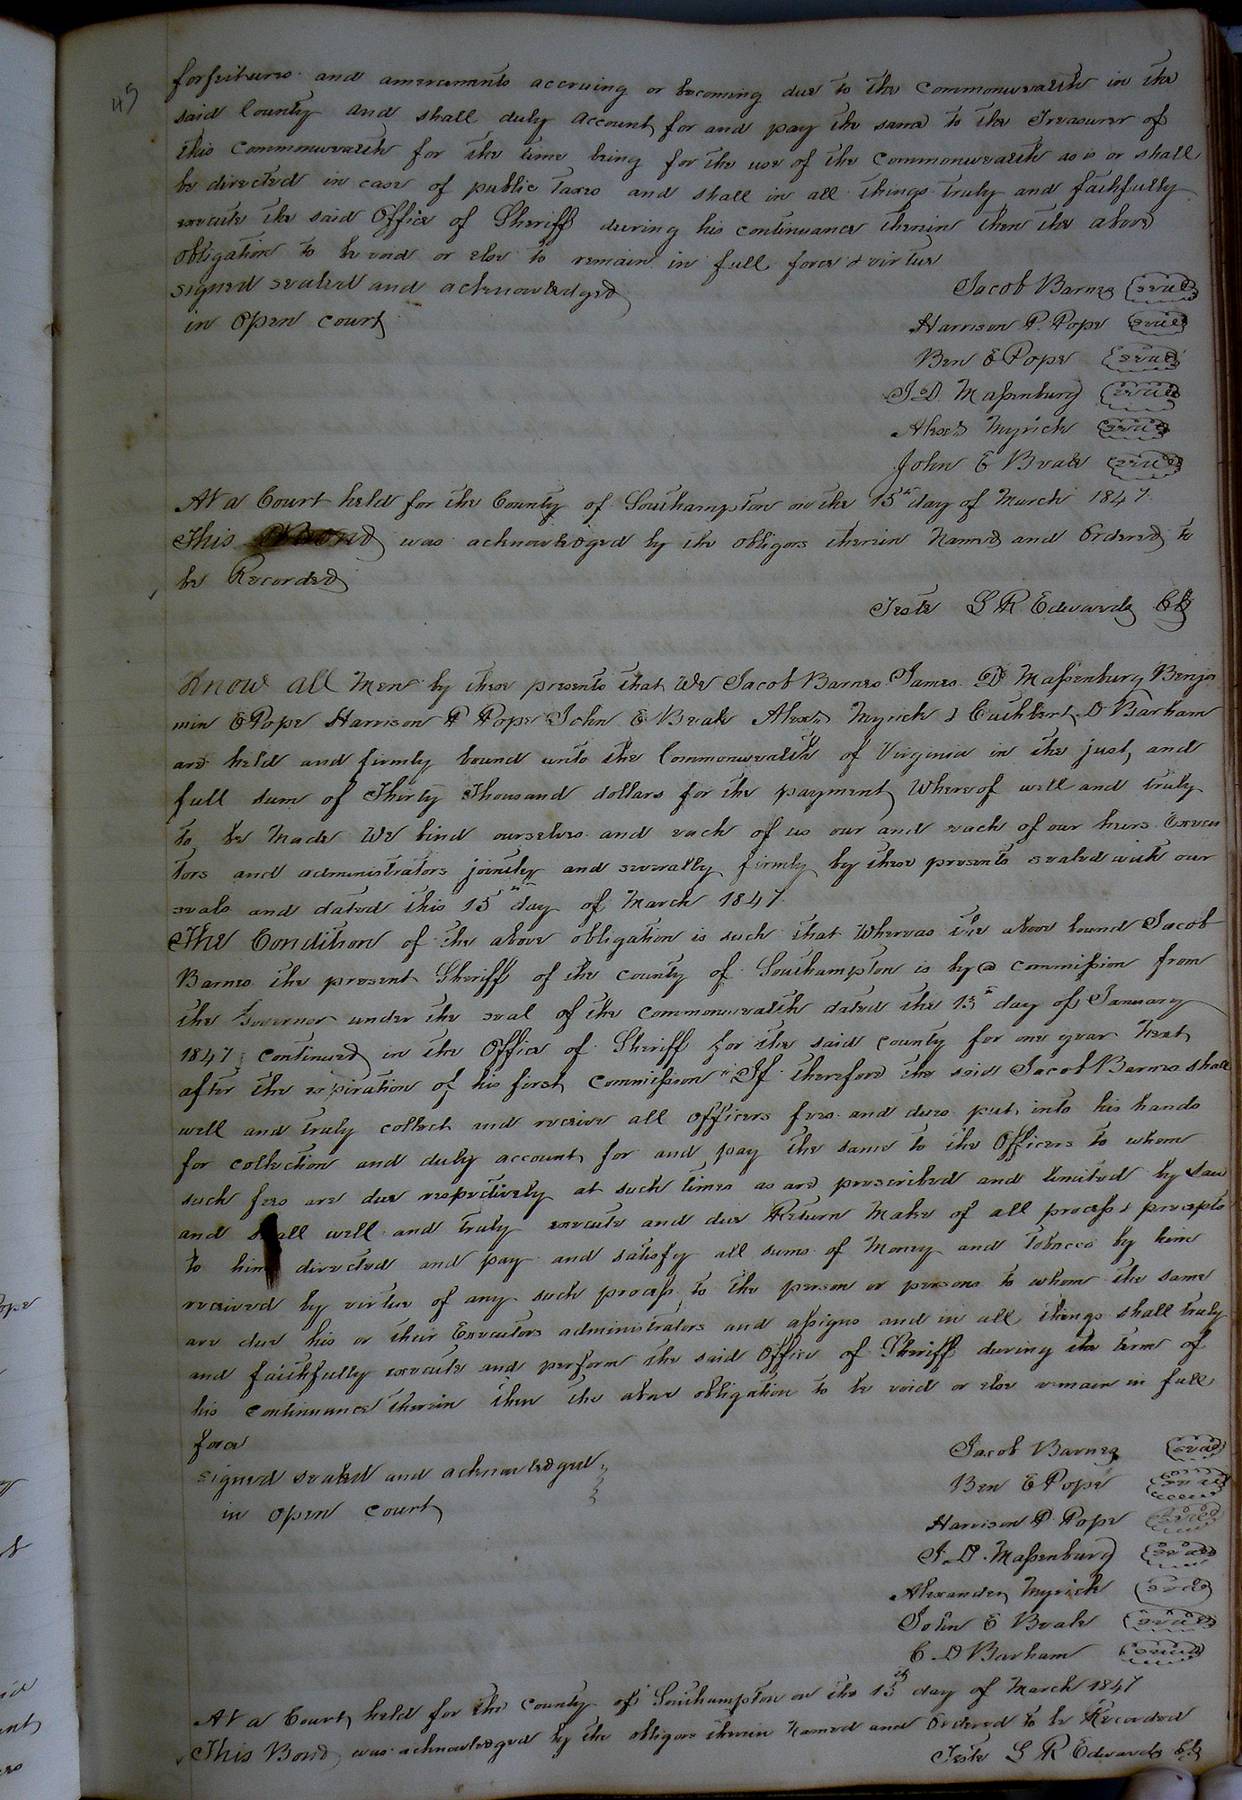 45
forfeitures and amercements accruing or becoming due to the Commonwealth in the
said County and shall duly account for and pay the same to the Treasurer of
this Commonwealth for the time being for the use of the Commonwealth as is or shall
be directed in case of public taxes and shall in all things truly and faithfully
execute the said Office of Sheriff during his continuance therein then the above
obligation to be void or else to remain in full force & virtue
signed sealed and acknowledged
in Open Court
Jacob Barnes seal
Harrison P. Pope seal
Ben E Pope seal
J. D. Maſsenburg seal
Alexr Myrick seal
John E Beale seal
At a Court held for the County of Southampton on the 15th day of March 1847.
This Bond was acknowledged by the obligors therein Named and Ordered to
be Recorded
Teste L R Edwards Clk
Know all Men by these presents that We Jacob Barnes James D Maſsenburg Benja
min E Pope Harrison P Pope John E Beale Alexr Myrick & Cuthbert D Barham
are held and firmly bound unto the Commonwealth of Virginia in the just and
full sum of Thirty Thousand dollars for the payment Whereof well and truly
to be Made We bind ourselves and each of us our and each of our heirs Execu
tors and administrators jointly and severally firmly by these presents sealed with our
seals and dated this 15th day of March 1847.
The Condition of the above obligation is such that Whereas the above bound Jacob
Barnes the present Sheriff of the county of Southampton is by a commiſsion from
the Governor under the seal of the commonwealth dated the 15th day of January
1847; continued in the Office of Sheriff for the said county for one year Next
after the expiration of his first commiſsion "If therefore the said Jacob Barnes shall
well and truly collect and receive all Officers fees and dues put into his hands
for collection and duly account for and pay the same to the Officers to whom
such fees are due respectively at such times as are prescribed and limited by Law
and shall well and truly execute and due Return Make of all proceſs & precepts
to him directed and pay and satisfy all sums of Money and Tobacco by him
received by virtue of any such proceſs to the person or persons to whom the same
are due his or their Executors administrators and aſsigns and in all things shall truly
and faithfully execute and perform the said Office of Sheriff during the term of
his continuance therein then the above obligation to be void or else remain in full
force
signed sealed and acknowledged
in Open Court
Jacob Barnes seal
Ben E Pope seal
Harrison P. Pope seal
J. D. Maſsenburg seal
Alexander Myrick seal
John E Beale seal
C D Barham seal
At a Court held for the County of Southampton on the 15th day of March 1847
This Bond was acknowledged by the obligors therein Named and Ordered to be Recorded
Teste L R Edwards Clk